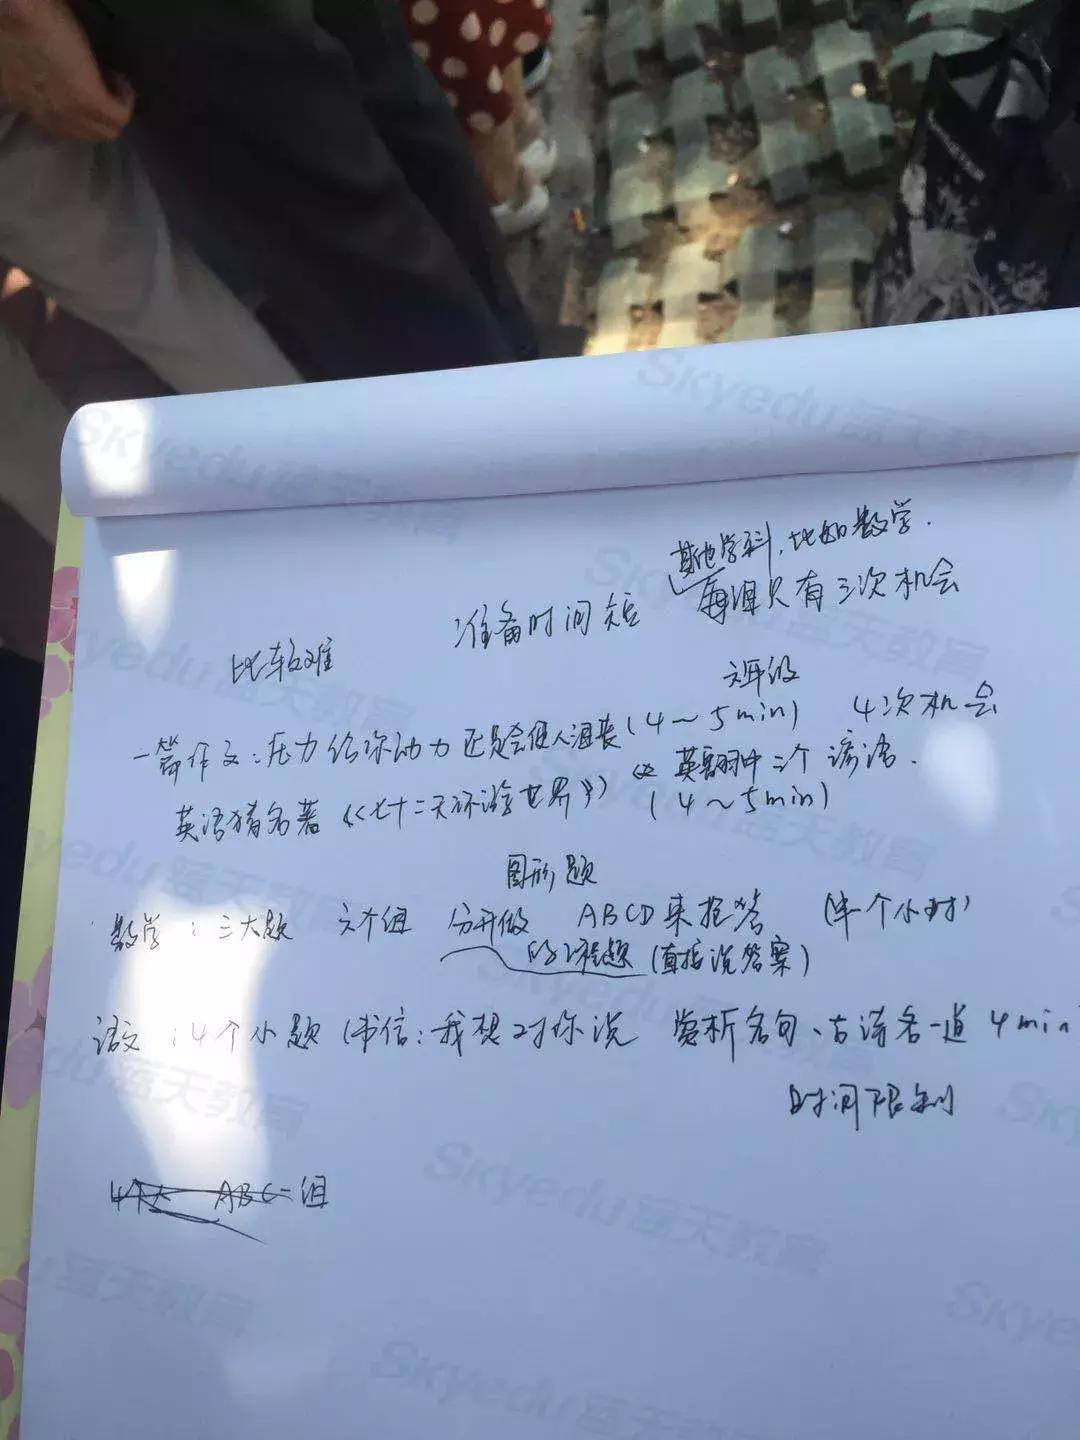 其他学科,比如数学.
准备时间短 每组只有三次机会
比较难
六年级
一篇作文:压力给你动力还是会使人沮丧(4~5min) 4次机会
英语猜名著《七十二天环游世界》 英翻中 三个谚语.
(4~5min)
图形题
数学:三大题 六个组 分开做 ABCD来抢答 (半个小时)
的课题(直接说答案)
语文:4个小题(书信:我想对你说 赏析名句、古诗各一道 4min
时间限制
4个人 ABC=组
Skyedu蓝天教育